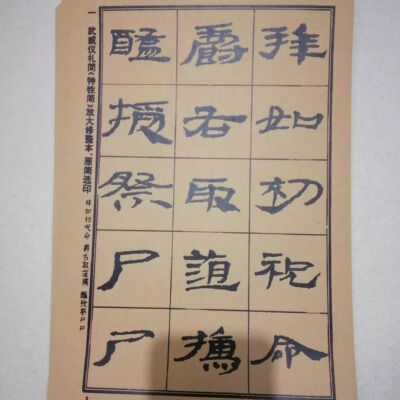 拜如初祝命
爵右取菹
醢授祭尸尸
一 武威仪礼简《特牲简》放大修整本、原简选印 拜如初祝命 爵右取菹 醢授祭尸尸